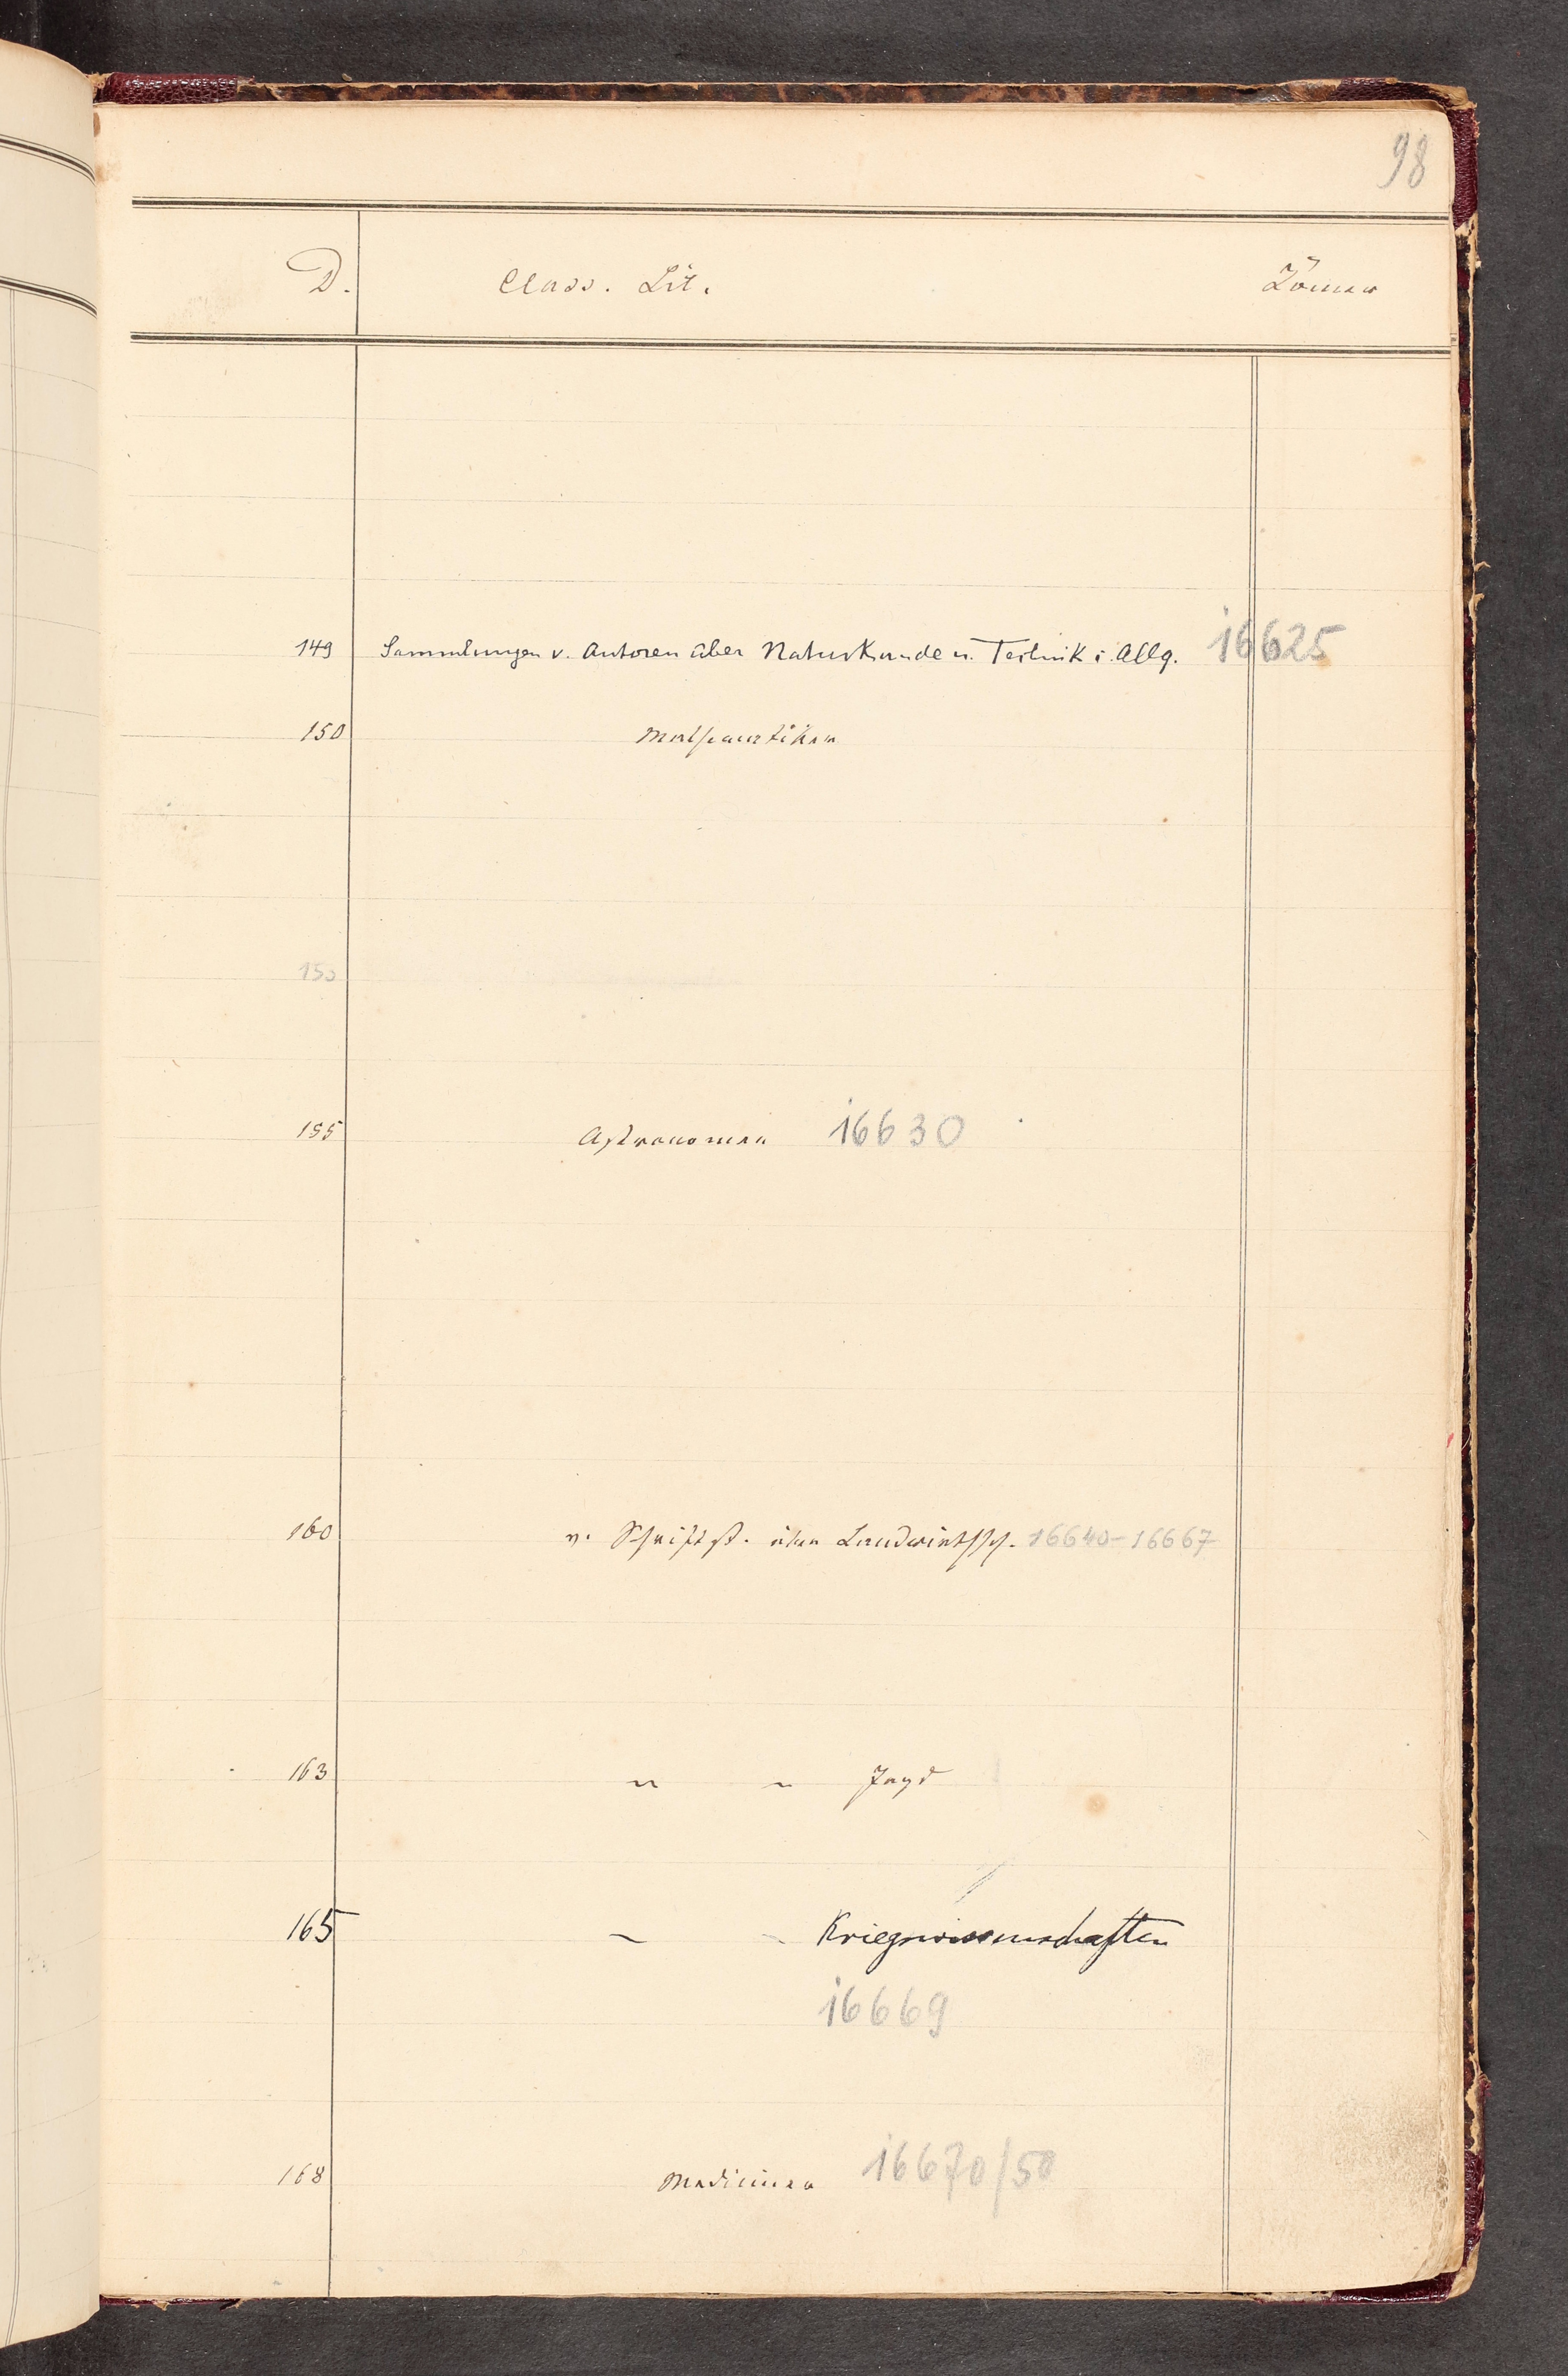 98
D. Class. Lit. Römer
149 Sammlungen v. Autoren über Naturkunde u. Technik i. Allg. 16625
150 Mathematiker
150
155 Astronomen 16630
160 v. Schriftst. über Landwirthsch. 16640-16667
163 " " Jagd
165 " " Kriegswissenschaften
16669
168 Mediciner 16670/50